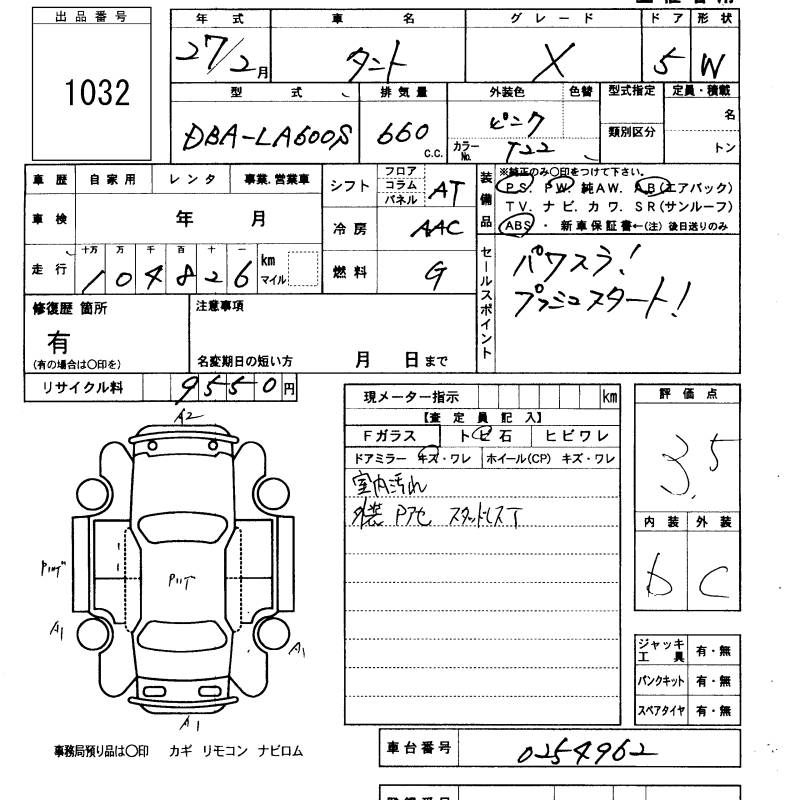 出品番号
1032
年式 車名 グレード ドア 形状
27/2月 タント X 5 W
型式 排気量 外装色 色替 型式指定 定員・積載
DBA-LA600S 660 c.c. ピンク 類別区分 名
カラーNo. T22 トン
車歴 自家用 レンタ 事業.営業車
車検 年 月
走行 十万 万 千 百 十 一
1 0 4 8 2 6 km マイル
シフト フロア コラム パネル AT
冷房 AAC
燃料 G
装備品 ※純正のみ〇印をつけて下さい。
PS. PW. 純AW. AB(エアバック)
TV. ナビ. カワ. SR(サンルーフ)
ABS ・ 新車保証書←(注)後日送りのみ
セールスポイント
パワスラ!
プッシュスタート!
修復歴 箇所
有
(有の場合は〇印を)
注意事項
名変期日の短い方 月 日まで
リサイクル料 9550円
現メーター指示 km
【査定員記入】
Fガラス トビ石 ヒビワレ
ドアミラー キズ・ワレ ホイール(CP) キズ・ワレ
室内汚れ
外装 Pアセ スタッドレスT
評価点
3.5
内装 外装
b C
ジャッキ工具 有・無
パンクキット 有・無
スペアタイヤ 有・無
A2
A1
A1
A1
事務局預り品は〇印 カギ リモコン ナビロム
車台番号 0254962